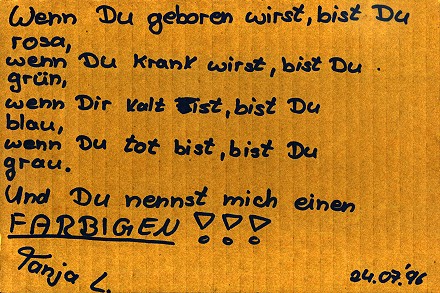 Wenn Du geboren wirst, bist Du
rosa,
wenn Du krank wirst, bist Du
grün,
wenn Dir kalt ist, bist Du
blau,
wenn Du tot bist, bist Du
grau.
Und Du nennst mich einen
FARBIGEN !!!
Tanja L.
24.07.'96